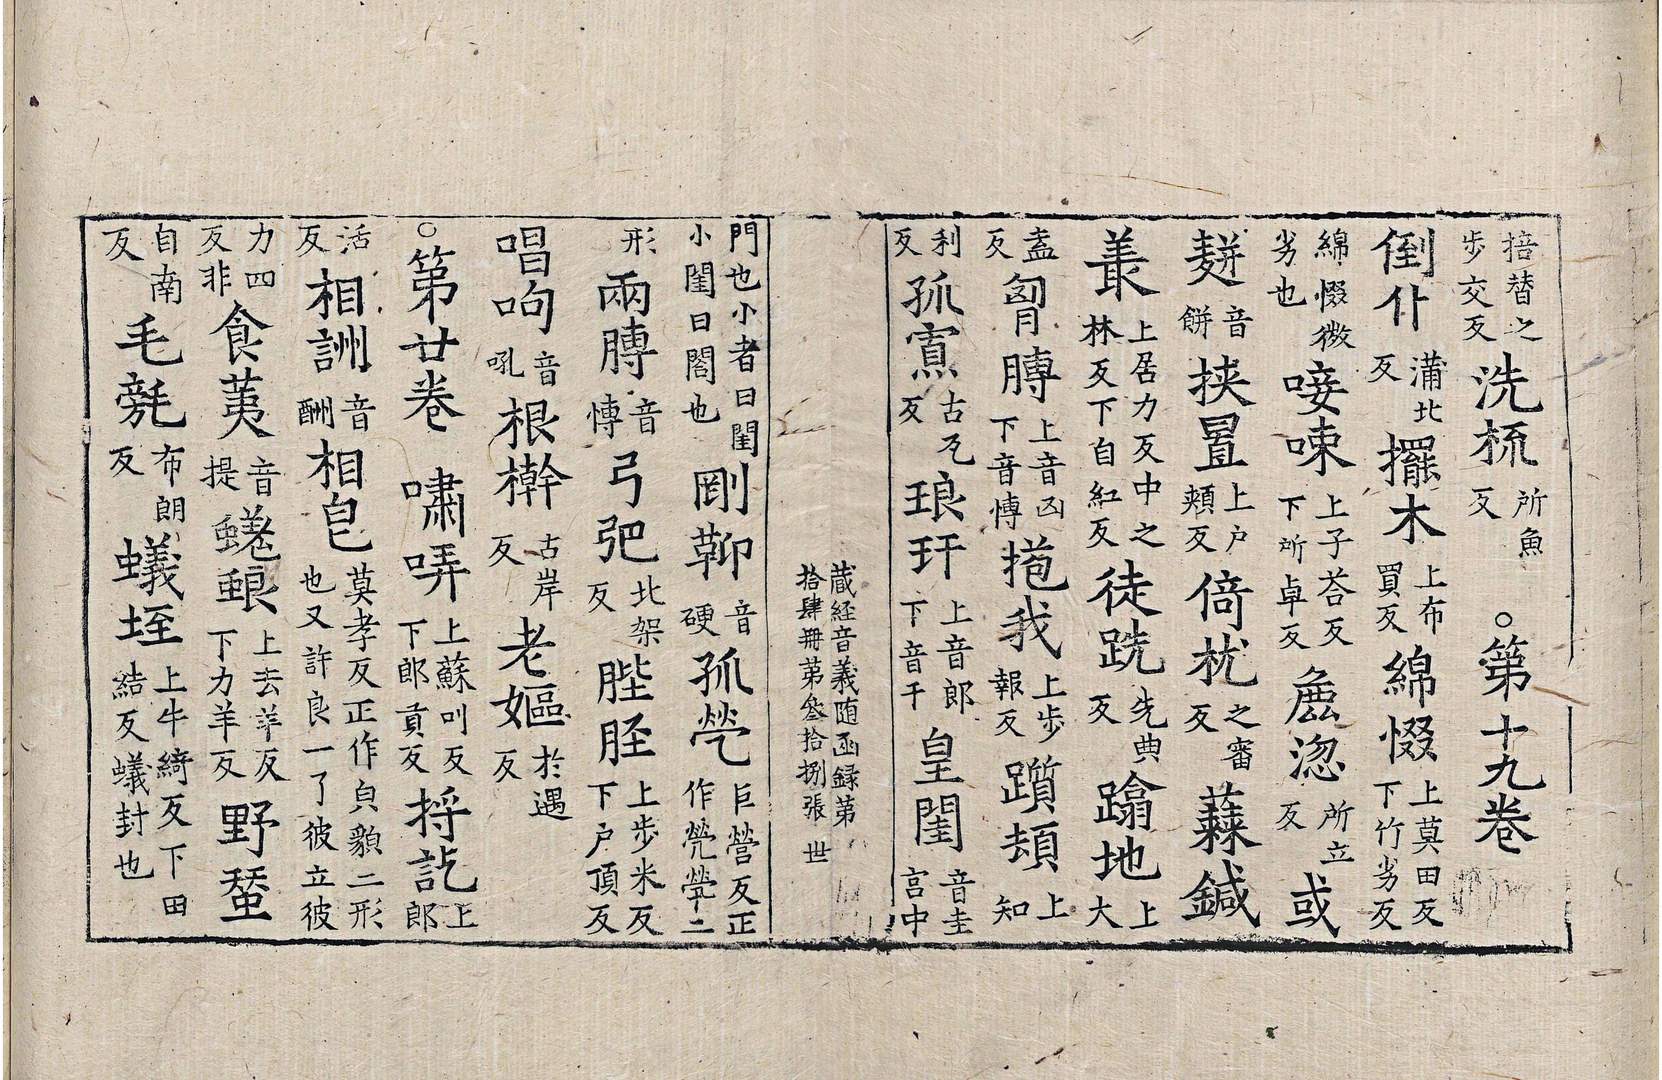 掊替之步交反洗梳所魚反○第十九卷
倒仆蒲北反擺木上布買反綿惙上莫田反下竹劣反
綿惙微劣也唼㖒上子荅反下所卓反麁澀所立反或
麨音餅挟置上户頰反倚枕之審反蘇鍼
叢上居力反中之林反下自紅反徒跣先典反蹹地上大
盍反胷膊上音凶下音博抱我上步報反躓頓上知
利反孤㝨古瓦反琅玕上音郎下音干皇閨音圭宫中
藏経音義随函録第拾肆冊第叄拾捌張 世
門也小者曰閨小閨曰閤也剛鞕音硬孤煢巨營反正作㷀惸二
形兩膊音博弓弝北架反䏶脛上步米反下户頂反
唱呴音吼根榦古岸反老嫗於遇反
○第廿卷嘯哢上蘇叫反下郎貢反捋訖上郎
活反相詶音酬相皃莫孝反正作皃貌二形也又許良一了彼立彼
力四反非食荑音提蜣蜋上去羊反下力羊反野蝅
自南反毛髈布朗反蟻垤上牛綺反下田結反蟻封也